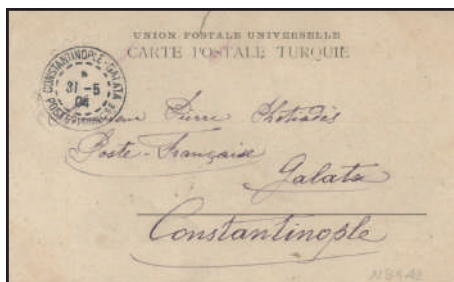 UNION POSTALE UNIVERSELLE
CARTE POSTALE TURQUIE
CONSTANTINOPLE-GALATA
31 -5
POSTE FRANÇAISE
Pierre Photiadès
Poste-Française
Galata
Constantinople